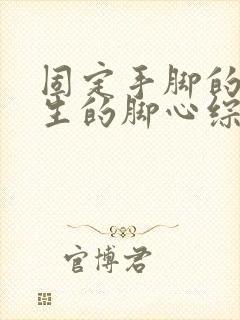 固定手脚的
生的脚心综
官博君